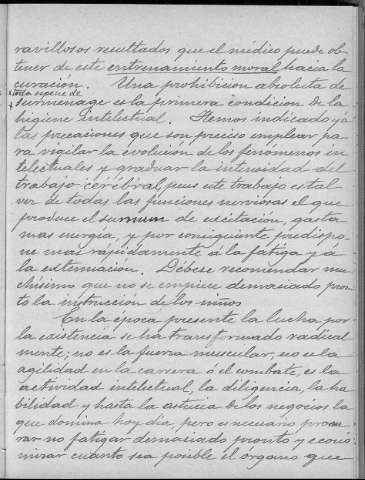 ravillosos resultados que el médico puede ob-
tener de este entrenamiento moral hacia la
curación. Una prohibición absoluta de
toda especie de
surmenage es la primera condicion de la
higiene Intelectual. Hemos indicado yá
las precaciones que son preciso emplear pa-
ra vigilar la evolución de los fenómenos in-
telectuales y graduar la intensidad del
trabajo cérébral, pues este trabajo es tal
vez de todas las funciones nerviosas el que
produce el sumum de excitación, gasta
mas energía, y por consiguiente predispo-
ne mas rápidamente á la fatiga y á
la extenuación. Débese recomendar mu-
chísimo que no se empiece demaciado pron-
to la instrucción de los niños
En la época presente la lucha por
la existencia se ha transformado radical
mente; no es la fuerza muscular, no es la
agilidad en la carrera ó el combate, es la
actividad intelectual, la diligencia, la ha-
bilidad y hasta la astucia de los negocios la
que domina hoy dia, pero es necesario procu-
rar no fatigar demaciado pronto y econó-
mizar cuanto sea posible el órgano que